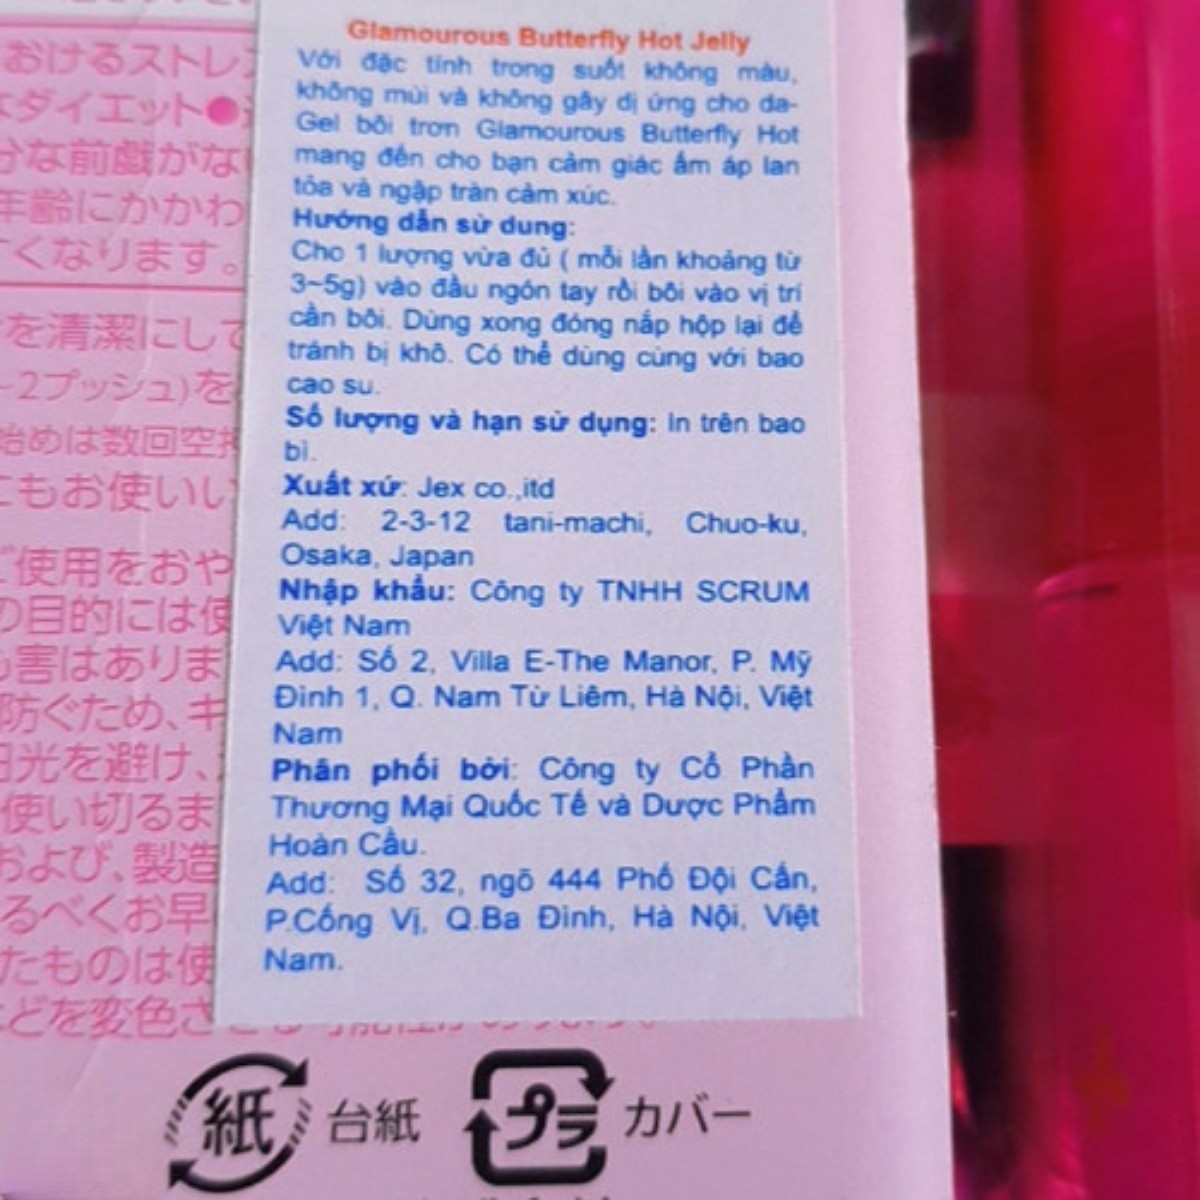 Glamourous Butterfly Hot Jelly
Với đặc tính trong suốt không màu,
không mùi và không gây dị ứng cho da-
Gel bôi trơn Glamourous Butterfly Hot
mang đến cho bạn cảm giác ấm áp lan
tỏa và ngập tràn cảm xúc.
Hướng dẫn sử dung:
Cho 1 lượng vừa đủ ( mỗi lần khoảng từ
3~5g) vào đầu ngón tay rồi bôi vào vị trí
cần bôi. Dùng xong đóng nắp hộp lại để
tránh bị khô. Có thể dùng cùng với bao
cao su.
Số lượng và hạn sử dụng: In trên bao
bì.
Xuất xứ: Jex co.,itd
Add: 2-3-12 tani-machi, Chuo-ku,
Osaka, Japan
Nhập khẩu: Công ty TNHH SCRUM
Việt Nam
Add: Số 2, Villa E-The Manor, P. Mỹ
Đình 1, Q. Nam Từ Liêm, Hà Nội, Việt
Nam
Phân phối bởi: Công ty Cổ Phần
Thương Mại Quốc Tế và Dược Phẩm
Hoàn Cầu.
Add: Số 32, ngõ 444 Phố Đội Cấn,
P.Cống Vị, Q.Ba Đình, Hà Nội, Việt
Nam.
おけるストレ
ダイエット●
分な前戯がな
年齢にかかわ
くなります。
を清潔にして
2プッシュ)を
始めは数回空
にもお使いい
ご使用をおや
の目的には使
害はありま
防ぐため、キ
日光を避け、
使い切るま
および、製造
るべくお早
たものは使
どを変色さ
紙 台紙 プラ カバー